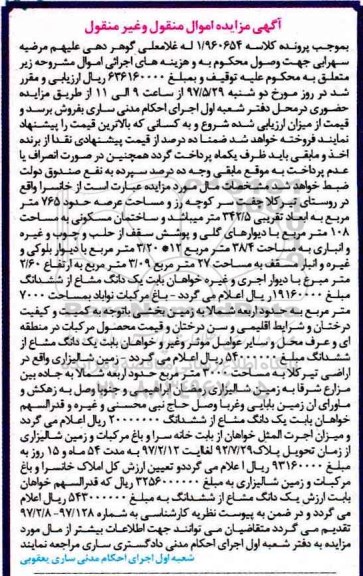 آگهی مزایده اموال منقول وغیر منقول
بموجب پرونده کلاسه ۱/۹۶۰۶۵۴ له غلامعلی گوهر دهی علیهم مرضیه
سهرابی جهت وصول محکوم به و هزینه های اجرائی اموال مشروحه زیر
متعلق به محکوم علیه توقیف و بمبلغ ۶۳۶۱۶۰۰۰۰ ریال ارزیابی و مقرر
شد در روز مورخ دو شنبه ۹۷/۵/۲۹ از ساعت ۹ الی ۱۱ از طریق مزایده
حضوری درمحل دفتر شعبه اول اجرای احکام مدنی ساری بفروش برسد و
قیمت از میزان ارزیابی شده شروع و به کسانی که بالاترین قیمت را پیشنهاد
نمایند فروخته خواهد شد ضمنا ده درصد از قیمت پیشنهادی نقدا از برنده
اخذ و مابقی باید ظرف یکماه پرداخت گردد همچنین در صورت انصراف یا
عدم پرداخت به موقع مابقی وجه ده درصد سپرده به نفع صندوق دولت
ضبط خواهد شد. مشخصات مال مورد مزایده عبارت است از خانسرا واقع
در روستای تیرکلا چفت سر کوچه رز و مساحت عرصه حدود ۷۶۵ متر
مربع به ابعاد تقریبی ۳۴۲/۵ متر میباشد و ساختمان مسکونی به مساحت
۱۰۸ متر مربع با دیوارهای گلی و پوشش سقف از حلب و چوب و غیره
و انباری به مساحت ۳۸/۴ متر مربع ۱۲* ۳/۲۰ متر مربع با دیوار بلوکی و
غیره و انبار مسقف به مساحت ۲۷ متر مربع ۳/۰۹ متر مربع به ارتفاع ۲/۶۰
متر مربع با دیوار اجری و غیره خواهان بابت یک دانگ مشاع از ششدانگ
۱۹۱۶۰۰۰۰۰ ریال اعلام می گردد - باغ مرکبات نواباد بمساحت ۷۰۰۰
متر مربع به حدود اربعه شمالا به زمین بخشی باتوجه به کمیت و کیفیت
درختان و شرایط اقلیمی و سن درختان و قیمت محصول مرکبات در منطقه
ای و عرف محل و سایر عوامل موثر وغیر و خواهان بابت یک دانگ مشاع از
ششدانگ مبلغ ۵۴۰۰۰۰۰۰۰ ریال اعلام می گردد - زمین شالیزاری واقع در
اراضی تیرکلا به مساحت ۳۰۰۰ متر مربع حدود اربعه شمالا به جاده بین
مزارع شرقا به زمین شالیزاری رمضان ابراهیمی و جنوبا وصل به زهکش و
ماورای ان زمین بابایی وغربا وصل حاج نبی محسنی و غیره و قدرالسهم
خواهان بابت یک دانگ مشاع از ششدانگ ۲۰۰۰۰۰۰۰۰ ریال اعلام می گردد
و میزان اجرت المثل خواهان از بابت خانه سرا و باغ مرکبات و زمین شالیزاری
از زمان تحویل پلاک۹۲/۷/۲۹ لغایت ۹۷/۲/۱۲ به مدت ۵۴ ماه و ۱۵ روز به
مبلغ ۹۳۱۶۰۰۰۰ ریال ا علام می گرددو تعیین ارزش کل املاک خانسرا و باغ
مرکبات و زمین شالیزاری به مبلغ ۳۲۵۶۰۰۰۰۰۰ ریال که قدرالسهم خواهان
بابت ارزش یک دانگ مشاع از ششدانگ به مبلغ ۵۴۳۰۰۰۰۰۰ ریال اعلام
می گردد و در ضمن به پیوست نظریه کارشناسی به شماره ۹۷/۱۲۸-۹۷/۲/۸
تقدیم می گردد متقاضیان می توانند جهت اطلاعات بیشتر از مال مورد
مزایده به دفتر شعبه اول اجرای احکام مدنی دادگستری ساری مراجعه نمایند
شعبه اول اجرای احکام مدنی ساری یعقوبی